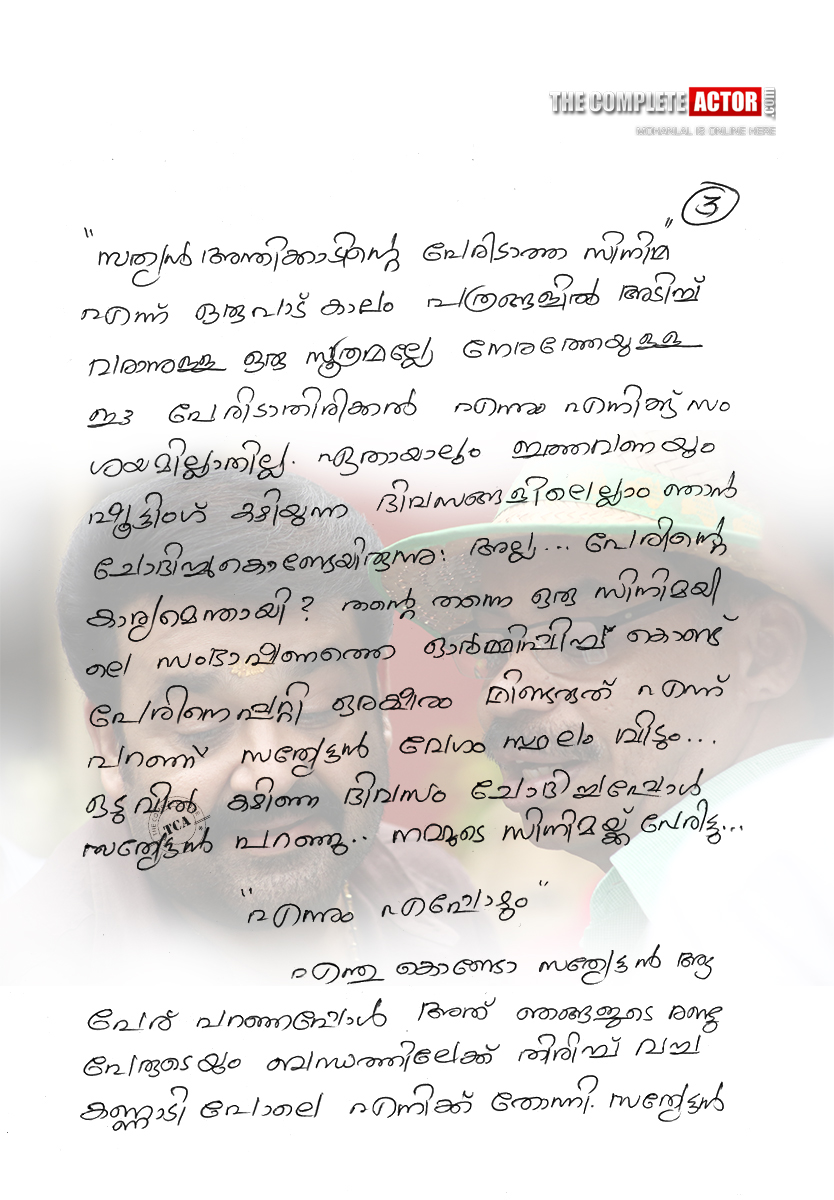 THE COMPLETE ACTOR .com
MOHANLAL IS ONLINE HERE
3
"സത്യൻ അന്തിക്കാടിന്റെ പേരിടാത്ത സിനിമ"
എന്ന് ഒരുപാട് കാലം പത്രങ്ങളിൽ അടിച്ച്
വരാനുള്ള ഒരു സൂത്രമല്ലേ നേരത്തേയുള്ള
ഈ പേരിടാതിരിക്കൽ എന്നും എനിക്ക് സം
ശയമില്ലാതില്ല. ഏതായാലും ഇത്തവണയും
ഷൂട്ടിംഗ് കഴിയുന്ന ദിവസങ്ങളിലെല്ലാം ഞാൻ
ചോദിച്ചുകൊണ്ടേയിരുന്നു: അല്ല... പേരിന്റെ
കാര്യമെന്തായി? തന്റെ തന്നെ ഒരു സിനിമയി
ലെ സംഭാഷണത്തെ ഓർമ്മിപ്പിച്ച് കൊണ്ട്
പേരിനെപ്പറ്റി ഒരക്ഷരം മിണ്ടരുത് എന്ന്
പറഞ്ഞ് സത്യേട്ടൻ വേഗം സ്ഥലം വിടും...
ഒടുവിൽ കഴിഞ്ഞ ദിവസം ചോദിച്ചപ്പോൾ
സത്യേട്ടൻ പറഞ്ഞു.. നമ്മുടെ സിനിമയ്ക്ക് പേരിട്ടു...
TCA
"എന്നും എപ്പോഴും"
എന്തു കൊണ്ടോ സത്യേട്ടൻ ആ
പേര് പറഞ്ഞപ്പോൾ അത് ഞങ്ങളുടെ രണ്ടു
പേരുടെയും ബന്ധത്തിലേക്ക് തിരിച്ച് വച്ച
കണ്ണാടി പോലെ എനിക്ക് തോന്നി. സത്യേട്ടൻ